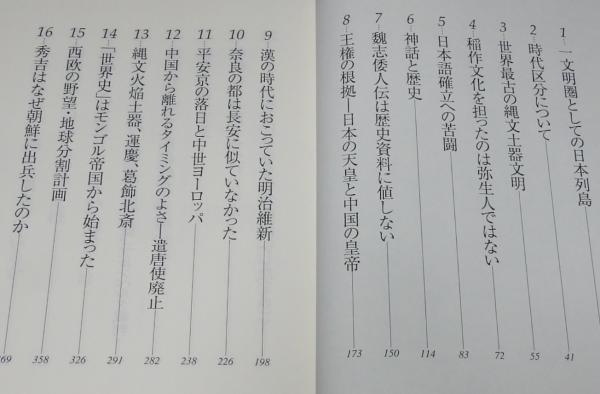 1 一文明圏としての日本列島 41
2 時代区分について 55
3 世界最古の縄文土器文明 72
4 稲作文化を担ったのは弥生人ではない 83
5 日本語確立への苦闘
6 神話と歴史 114
7 魏志倭人伝は歴史資料に値しない 150
8 王権の根拠—日本の天皇と中国の皇帝 173
9 漢の時代におこっていた明治維新 198
10 奈良の都は長安に似ていなかった 226
11 平安京の落日と中世ヨーロッパ 238
12 中国から離れるタイミングのよさ—遣唐使廃止 282
13 縄文火焔土器、運慶、葛飾北斎 291
14 「世界史」はモンゴル帝国から始まった 326
15 西欧の野望・地球分割計画 358
16 秀吉はなぜ朝鮮に出兵したのか 369